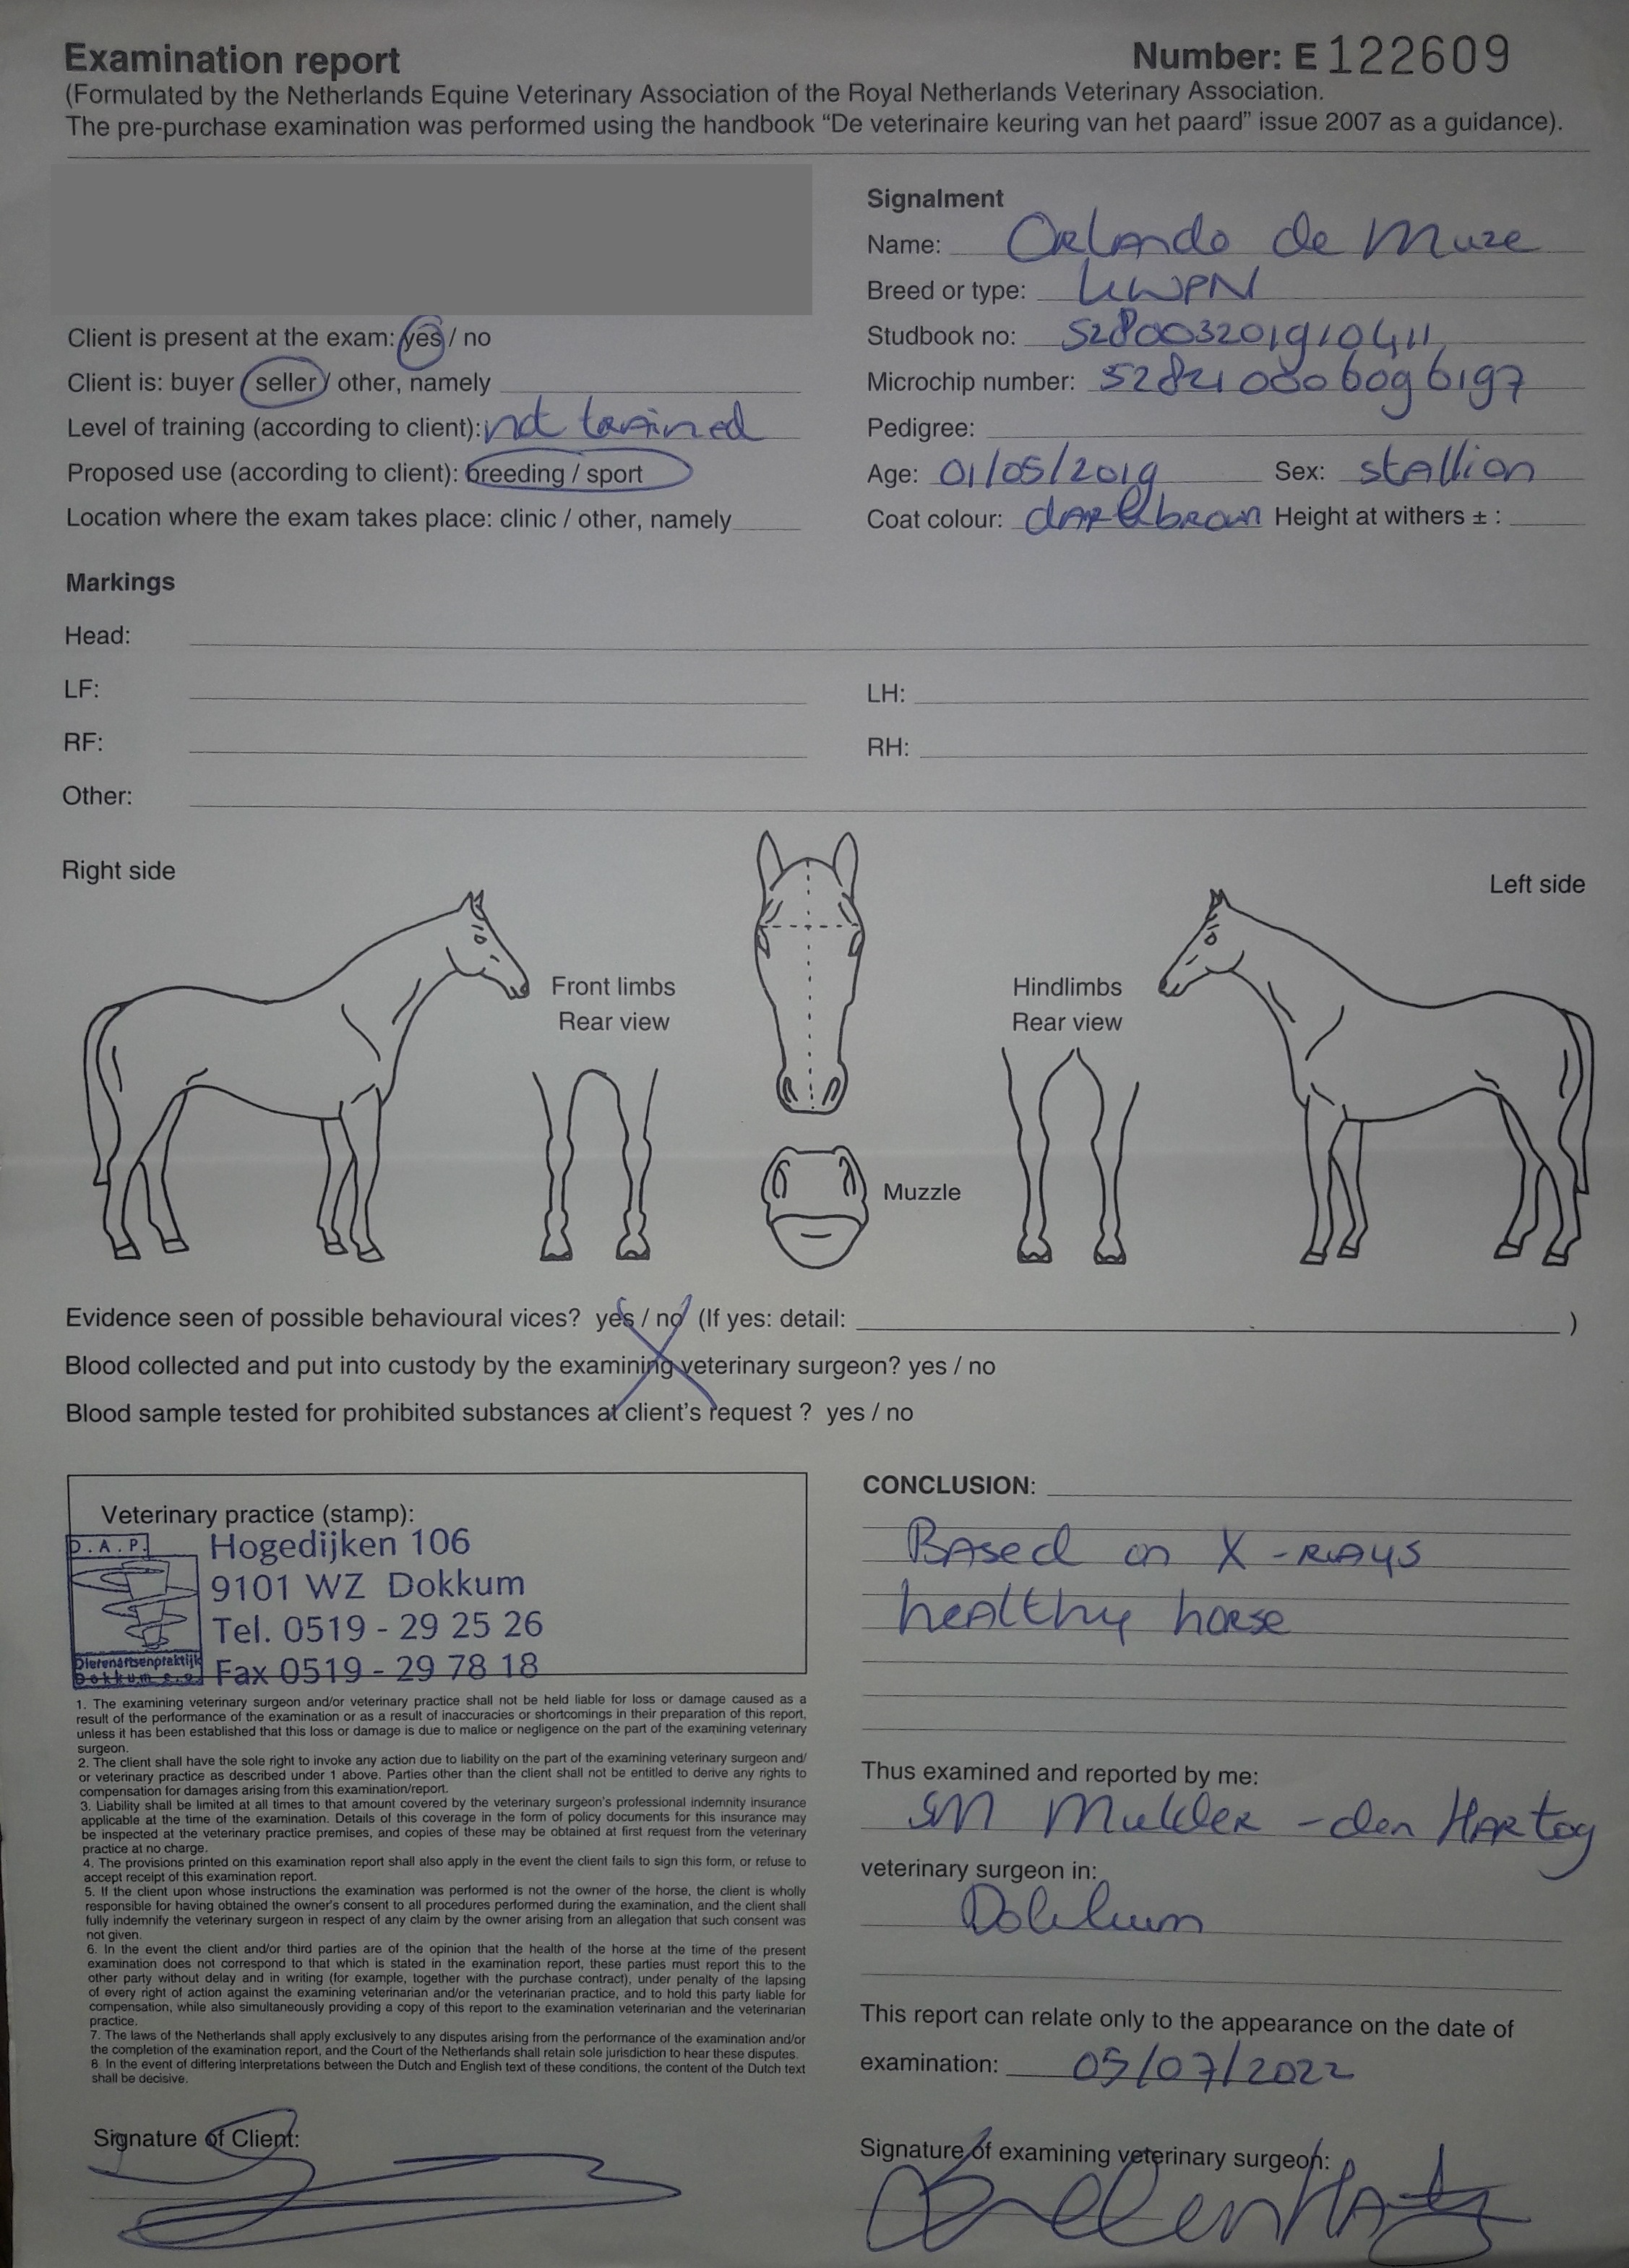 Examination report
Number: E 122609
(Formulated by the Netherlands Equine Veterinary Association of the Royal Netherlands Veterinary Association.
The pre-purchase examination was performed using the handbook “De veterinaire keuring van het paard” issue 2007 as a guidance).
Client is present at the exam: yes / no
Client is: buyer / seller / other, namely
Level of training (according to client): not trained
Proposed use (according to client): breeding / sport
Location where the exam takes place: clinic / other, namely
Signalment
Name: Orlando de Muze
Breed or type: KWPN
Studbook no: 528003201910411
Microchip number: 528210006096197
Pedigree:
Age: 01/05/2019 Sex: stallion
Coat colour: dark brown Height at withers ± :
Markings
Head:
LF: LH:
RF: RH:
Other:
Right side
Left side
Front limbs
Rear view
Hindlimbs
Rear view
Muzzle
Evidence seen of possible behavioural vices? yes / no (If yes: detail: )
Blood collected and put into custody by the examining veterinary surgeon? yes / no
Blood sample tested for prohibited substances at client's request ? yes / no
Veterinary practice (stamp):
D.A.P.
Dierenartsenpraktijk
Dokkum e.o.
Hogedijken 106
9101 WZ Dokkum
Tel. 0519 - 29 25 26
Fax 0519 - 29 78 18
1. The examining veterinary surgeon and/or veterinary practice shall not be held liable for loss or damage caused as a
result of the performance of the examination or as a result of inaccuracies or shortcomings in their preparation of this report,
unless it has been established that this loss or damage is due to malice or negligence on the part of the examining veterinary
surgeon.
2. The client shall have the sole right to invoke any action due to liability on the part of the examining veterinary surgeon and/
or veterinary practice as described under 1 above. Parties other than the client shall not be entitled to derive any rights to
compensation for damages arising from this examination/report.
3. Liability shall be limited at all times to that amount covered by the veterinary surgeon's professional indemnity insurance
applicable at the time of the examination. Details of this coverage in the form of policy documents for this insurance may
be inspected at the veterinary practice premises, and copies of these may be obtained at first request from the veterinary
practice at no charge.
4. The provisions printed on this examination report shall also apply in the event the client fails to sign this form, or refuse to
accept receipt of this examination report.
5. If the client upon whose instructions the examination was performed is not the owner of the horse, the client is wholly
responsible for having obtained the owner's consent to all procedures performed during the examination, and the client shall
fully indemnify the veterinary surgeon in respect of any claim by the owner arising from an allegation that such consent was
not given.
6. In the event the client and/or third parties are of the opinion that the health of the horse at the time of the present
examination does not correspond to that which is stated in the examination report, these parties must report this to the
other party without delay and in writing (for example, together with the purchase contract), under penalty of the lapsing
of every right of action against the examining veterinarian and/or the veterinarian practice, and to hold this party liable for
compensation, while also simultaneously providing a copy of this report to the examination veterinarian and the veterinarian
practice.
7. The laws of the Netherlands shall apply exclusively to any disputes arising from the performance of the examination and/or
the completion of the examination report, and the Court of the Netherlands shall retain sole jurisdiction to hear these disputes.
8. In the event of differing interpretations between the Dutch and English text of these conditions, the content of the Dutch text
shall be decisive.
Signature of Client:
CONCLUSION:
Based on X-rays
healthy horse
Thus examined and reported by me:
SM Mulder - den Hartog
veterinary surgeon in:
Dokkum
This report can relate only to the appearance on the date of
examination: 05/07/2022
Signature of examining veterinary surgeon: